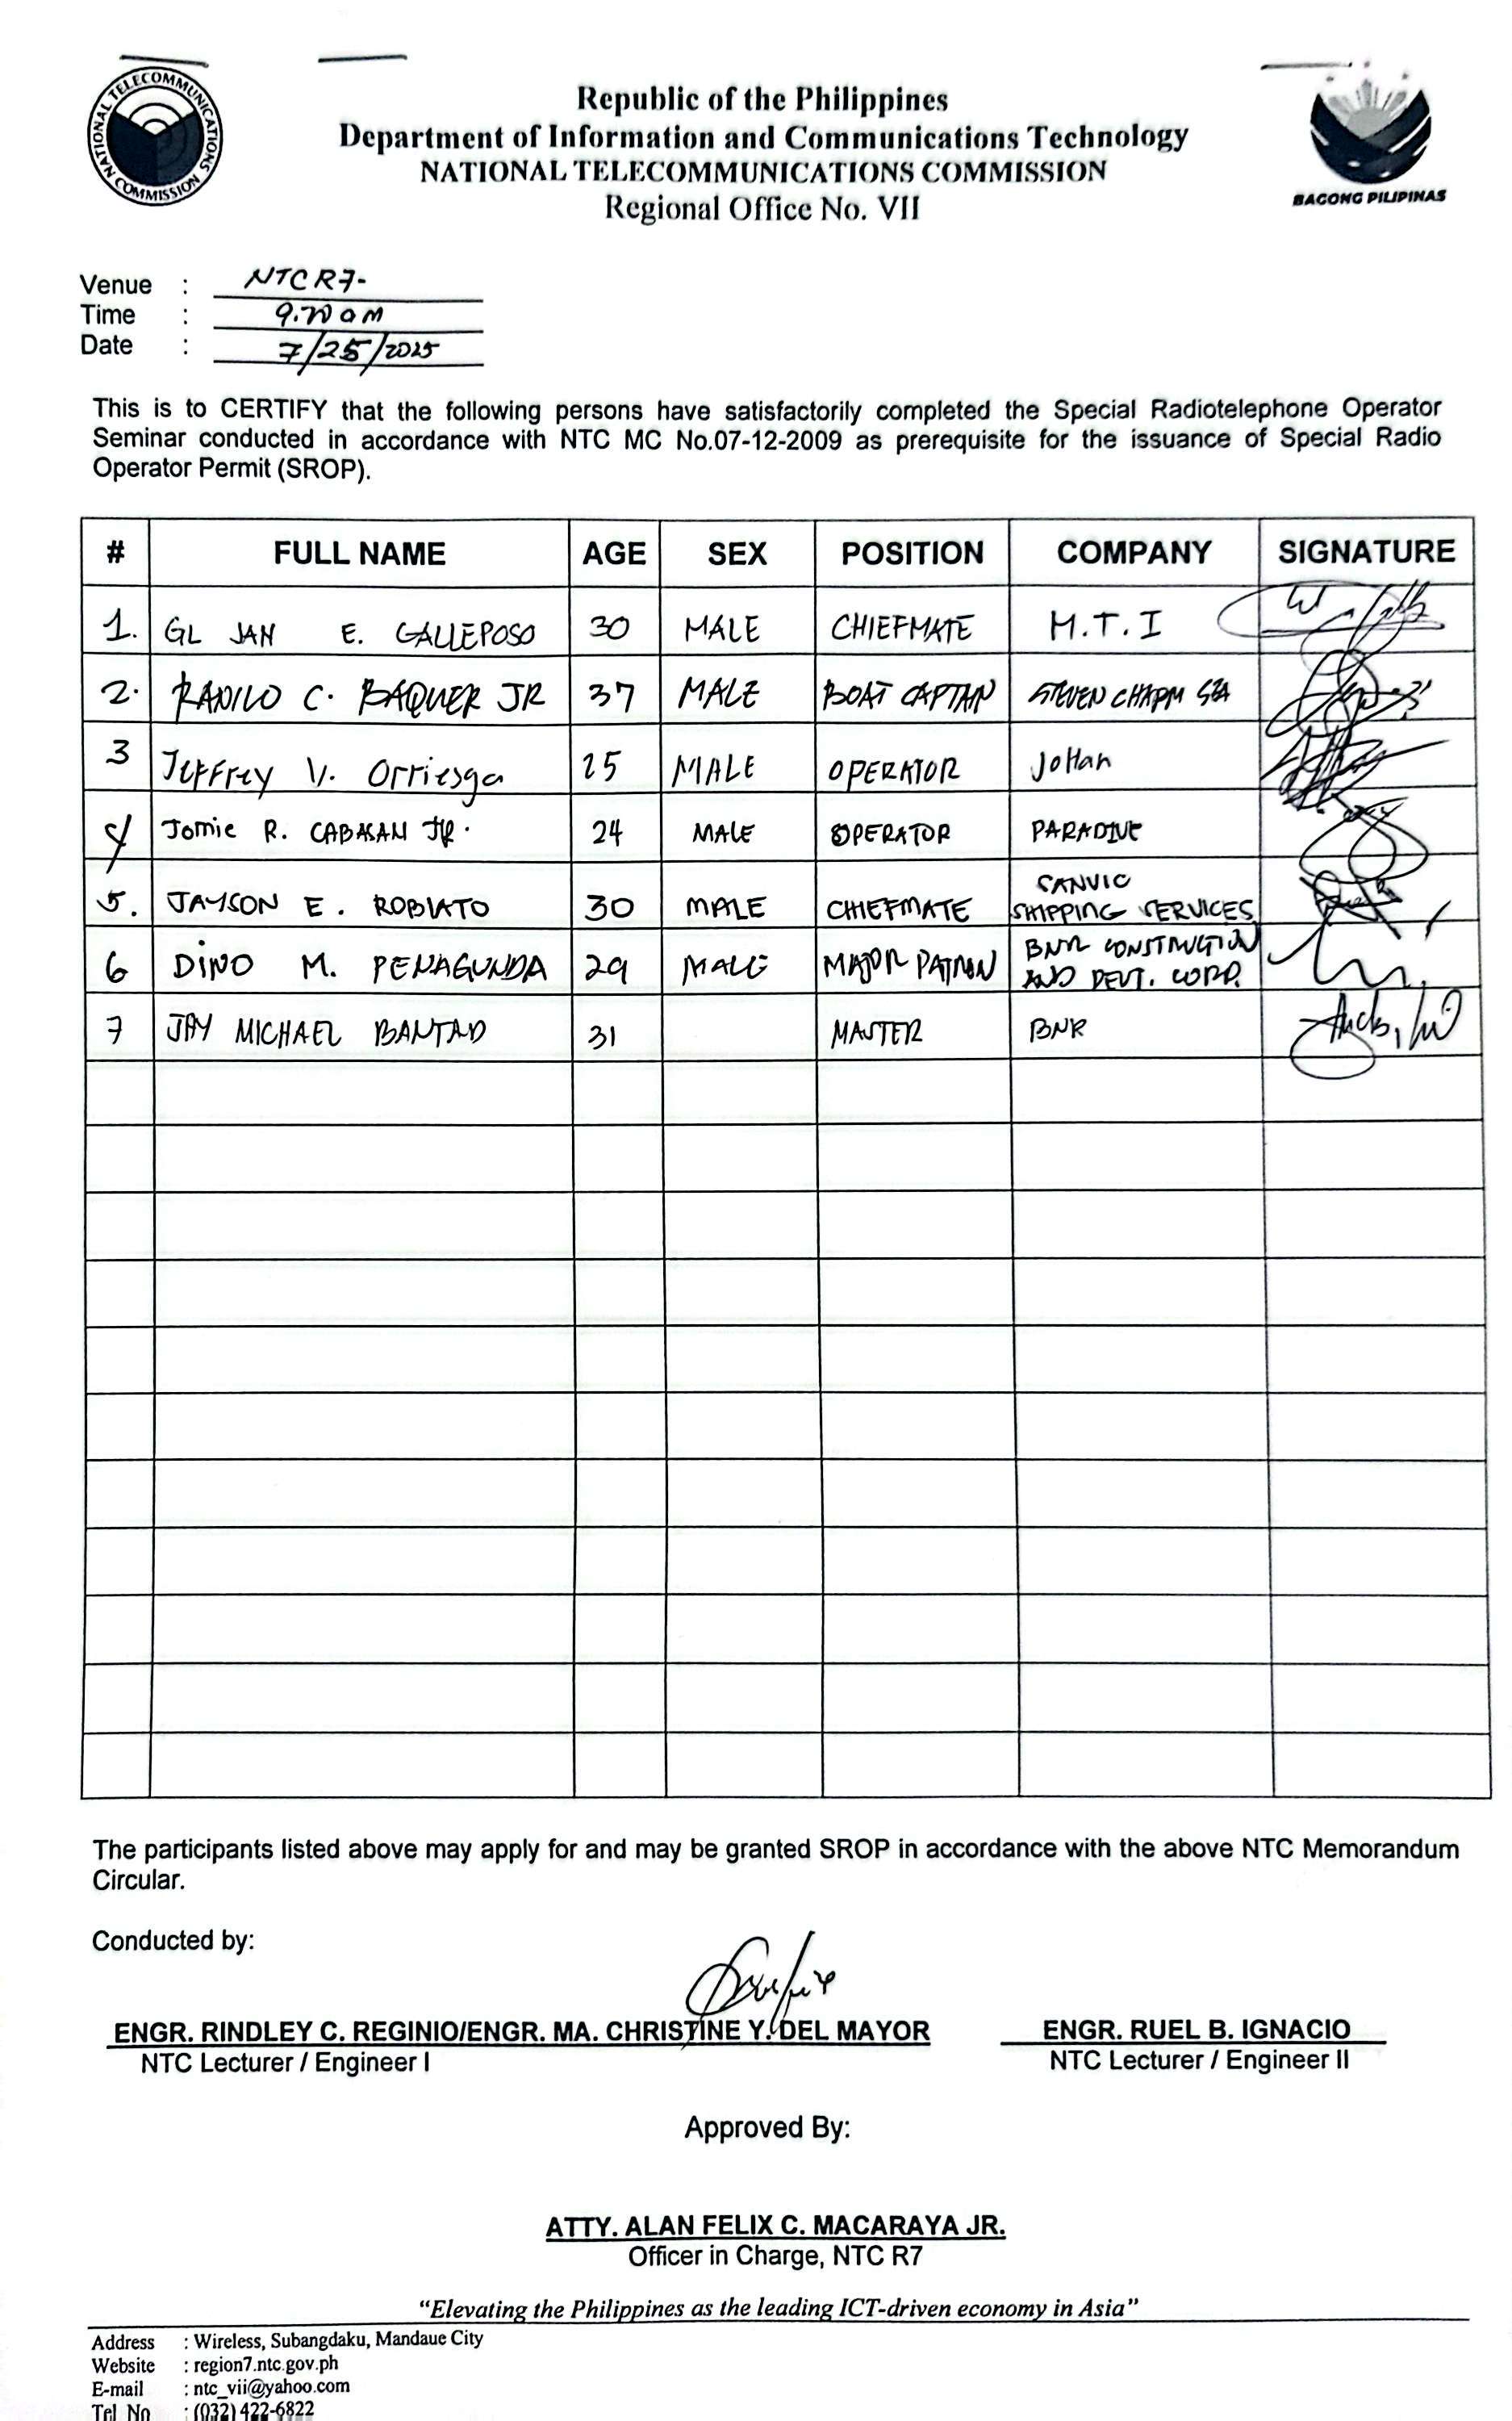 NATIONAL TELECOMMUNICATIONS COMMISSION
BAGONG PILIPINAS
Republic of the Philippines
Department of Information and Communications Technology
NATIONAL TELECOMMUNICATIONS COMMISSION
Regional Office No. VII
Venue : NTC R7-
Time : am
Date : 7/25/2025
This is to CERTIFY that the following persons have satisfactorily completed the Special Radiotelephone Operator
Seminar conducted in accordance with NTC MC No.07-12-2009 as prerequisite for the issuance of Special Radio
Operator Permit (SROP).
# FULL NAME AGE SEX POSITION COMPANY SIGNATURE
1. GL JAN E. GALLEPOSO 30 MALE CHIEFMATE M.T.I
2. RANILO C. BAQUER JR 37 MALE BOAT CAPTAIN STEVEN CHARM SEA
3 Jeffrey V. Orriesga 25 MALE OPERATOR JoHan
4 Jomie R. CABASAN JR. 24 MALE OPERATOR PARADIVE
5. JAYSON E. ROBLATO 30 MALE CHIEFMATE SANVIC
SHIPPING SERVICES
6 DiNO M. PENAGUNDA 29 MALE MAJOR PATRON BNR CONSTRUCTION
AND DEVT. CORP.
7 JAY MICHAEL BANTAD 31 MASTER BNR
The participants listed above may apply for and may be granted SROP in accordance with the above NTC Memorandum
Circular.
Conducted by:
ENGR. RINDLEY C. REGINIO/ENGR. MA. CHRISTINE Y. DEL MAYOR ENGR. RUEL B. IGNACIO
NTC Lecturer / Engineer I NTC Lecturer / Engineer II
Approved By:
ATTY. ALAN FELIX C. MACARAYA JR.
Officer in Charge, NTC R7
"Elevating the Philippines as the leading ICT-driven economy in Asia"
Address : Wireless, Subangdaku, Mandaue City
Website : region7.ntc.gov.ph
E-mail : ntc_vii@yahoo.com
Tel. No : (032) 422-6822